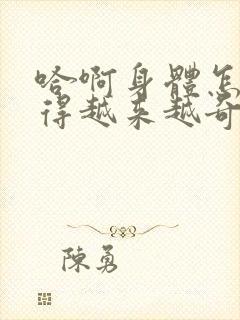 哈啊身體怎
得越来越奇
陳勇